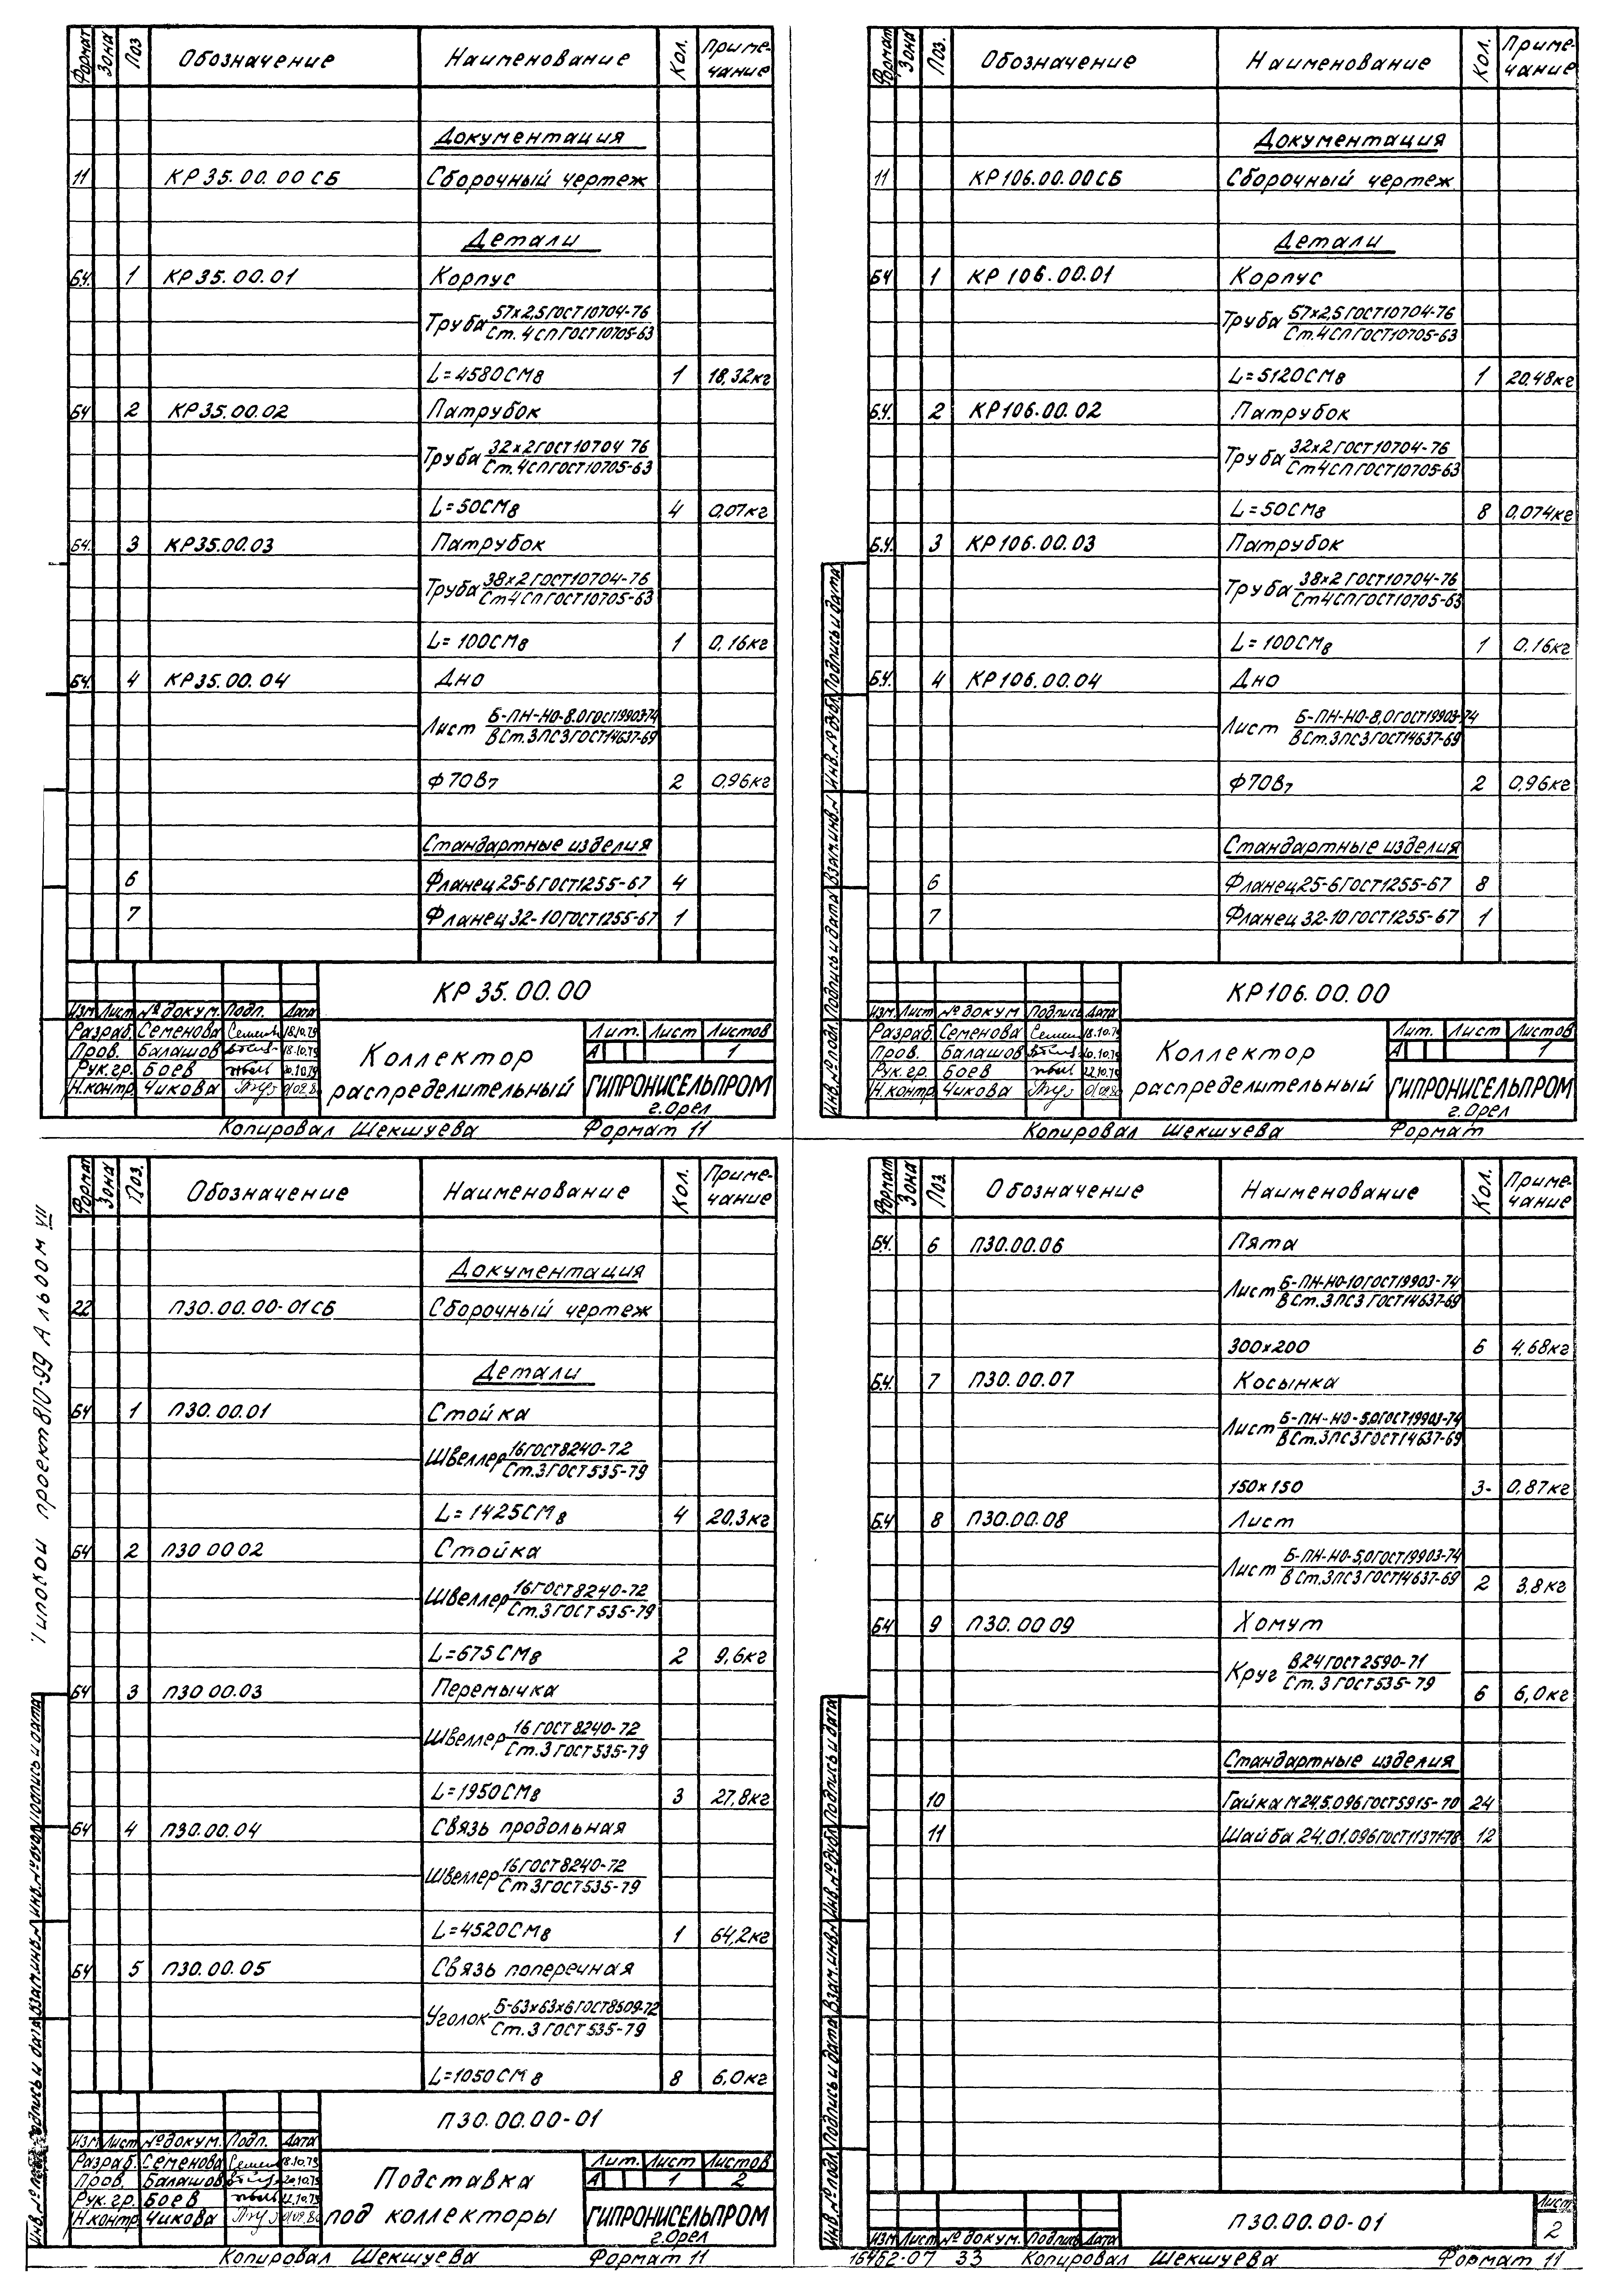 Формат Зона Поз Обозначение Наименование Кол. Приме-чание
Документация
11 КР 35.00.00 СБ Сборочный чертеж
Детали
БЧ. 1 КР 35.00.01 Корпус
Труба 57х2,5 ГОСТ 10704-76
Ст. 4 сп ГОСТ 10705-63
L=4580СМ8 1 18,32кг
БЧ 2 КР 35.00.02 Патрубок
Труба 32х2 ГОСТ 10704 76
Ст. 4 сп ГОСТ 10705-63
L=50СМ8 4 0,07кг
БЧ. 3 КР35.00.03 Патрубок
Труба 38х2 ГОСТ 10704-76
Ст 4 сп ГОСТ 10705-63
L=100СМ8 1 0,16кг
БЧ. 4 КР35.00.04 Дно
Лист Б-ПН-НО-8,0 ГОСТ19903-74
В Ст.3 ПС3 ГОСТ14637-69
Ф70В7 2 0,96кг
Стандартные изделия
6 Фланец 25-6 ГОСТ1255-67 4
7 Фланец 32-10 ГОСТ1255-67 1
КР 35.00.00
Изм Лист № докум. Подп. Дата
Разраб. Семенова 18.10.79
Пров. Балашов 18.10.79
Рук.гр. Боев 20.10.79
Н.контр. Чикова
Коллектор
распределительный
Лит. Лист Листов
А 1
ГИПРОНИСЕЛЬПРОМ
г.Орел
Копировал Шекшуева Формат 11
Формат Зона Поз. Обозначение Наименование Кол. Приме-чание
Документация
11 КР106.00.00СБ Сборочный чертеж
Детали
БЧ 1 КР 106.00.01 Корпус
Труба 57х2,5 ГОСТ 10704-76
Ст.4 сп ГОСТ 10705-63
L=5120СМ8 1 20,48кг
Б.Ч. 2 КР106.00.02 Патрубок
Труба 32х2 ГОСТ 10704-76
Ст 4 сп ГОСТ 10705-63
L=50СМ8 8 0,074кг
Б.Ч. 3 КР106.00.03 Патрубок
Труба 38х2 ГОСТ10704-76
Ст 4 сп ГОСТ 10705-63
L=100СМ8 1 0,16кг
Б.Ч. 4 КР106.00.04 Дно
Лист Б-ПН-НО-8,0 ГОСТ19903-74
В Ст.3 ПС3 ГОСТ14637-69
Ф70В7 2 0,96кг
Стандартные изделия
6 Фланец 25-6 ГОСТ1255-67 8
7 Фланец 32-10 ГОСТ1255-67 1
Инв.№ подл. Подпись и дата Взам.инв.№ Инв.№ дубл. Подпись и дата
КР106.00.00
Изм. Лист № докум Подпись Дата
Разраб. Семенова 18.10.79
Пров. Балашов 20.10.79
Рук.гр. Боев 22.10.79
Н.контр Чикова
Коллектор
распределительный
Лит. Лист Листов
А 1
ГИПРОНИСЕЛЬПРОМ
г.Орел
Копировал Шекшуева Формат
проект 810-99 Альбом VII
Формат Зона Поз. Обозначение Наименование Кол. Приме-чание
Документация
22 П30.00.00-01СБ Сборочный чертеж
Детали
БЧ 1 П30.00.01 Стойка
Швеллер 16 ГОСТ 8240-72
Ст.3 ГОСТ 535-79
L= 1425СМ8 4 20,3кг
БЧ 2 П30 00 02 Стойка
Швеллер 16 ГОСТ 8240-72
Ст.3 ГОСТ 535-79
L=675СМ8 2 9,6кг
БЧ 3 П30 00.03 Перемычка
Швеллер 16 ГОСТ 8240-72
Ст.3 ГОСТ 535-79
L=1950СМ8 3 27,8кг
БЧ 4 П30.00.04 Связь продольная
Швеллер 16 ГОСТ 8240-72
Ст 3 ГОСТ 535-79
L=4520СМ8 1 64,2кг
БЧ 5 П30.00.05 Связь поперечная
Уголок Б-63х63х6 ГОСТ8509-72
Ст.3 ГОСТ 535-79
L=1050СМ8 8 6,0кг
П30.00.00-01
Изм Лист № докум. Подп. Дата
Разраб. Семенова 18.10.79
Пров. Балашов 20.10.79
Рук.гр. Боев 22.10.79
Н.контр Чикова
Подставка
под коллекторы
Лит. Лист Листов
А 1 2
ГИПРОНИСЕЛЬПРОМ
г.Орел
Копировал Шекшуева Формат 11
Формат Зона Поз. Обозначение Наименование Кол. Приме-чание
БЧ. 6 П30.00.06 Пята
Лист Б-ПН-НО-10 ГОСТ19903-74
В Ст.3 ПС3 ГОСТ14637-69
300х200 6 4,68кг
Б.Ч. 7 П30.00.07 Косынка
Лист Б-ПН-НО-5,0 ГОСТ19903-74
В Ст.3 ПС3 ГОСТ14637-69
150х150 3- 0,87кг
БЧ 8 П30.00.08 Лист
Лист Б-ПН-НО-5,0 ГОСТ19903-74
В Ст.3 ПС3 ГОСТ14637-69 2 3,8кг
БЧ 9 П30.00 09 Хомут
Круг В24 ГОСТ 2590-71
Ст.3 ГОСТ 535-79
6 6,0кг
Стандартные изделия
10 Гайка М24.5.096 ГОСТ5915-70 24
11 Шайба 24.01.096 ГОСТ11371-78 12
Инв.№ подл. Подпись и дата Взам.инв.№ Инв.№ дубл. Подпись и дата
Изм Лист № докум. Подпись Дата
П30.00.00-01
Лист
2
16462-07 33 Копировал Шекшуева Формат 11